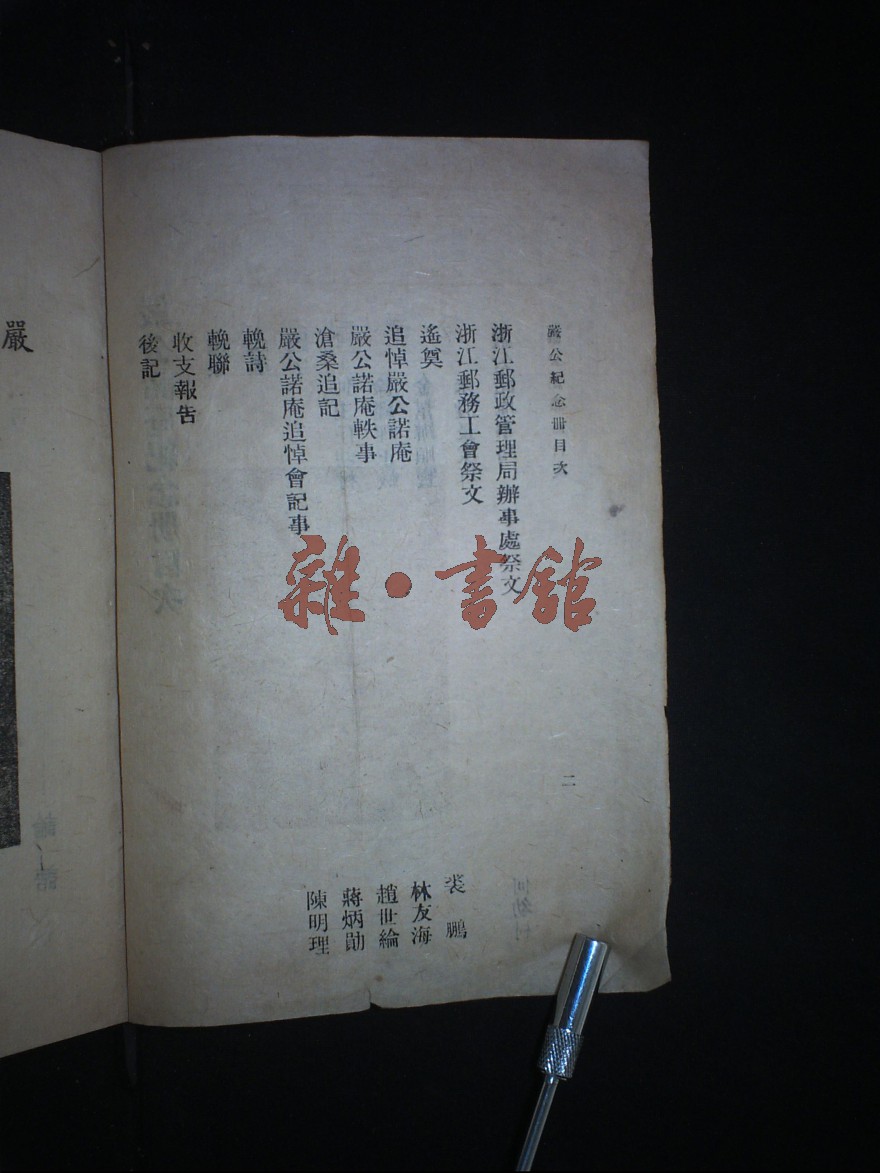 嚴公紀念冊目次
二
浙江郵政管理局辦事處祭文
浙江郵務工會祭文
遙奠
裘鵬
追悼嚴公諾庵
林友海
嚴公諾庵軼事
趙世綸
滄桑追記
蔣炳勛
嚴公諾庵追悼會記事
陳明理
輓詩
輓聯
收支報告
後記
嚴
雜·書館